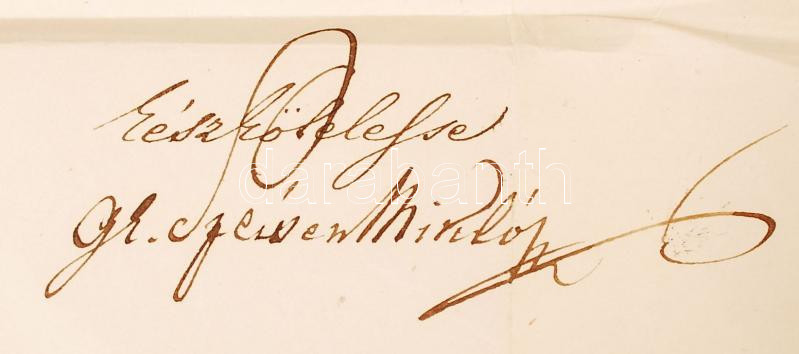 kész kötelesse
gr. Szécsen Miklós
darabanth